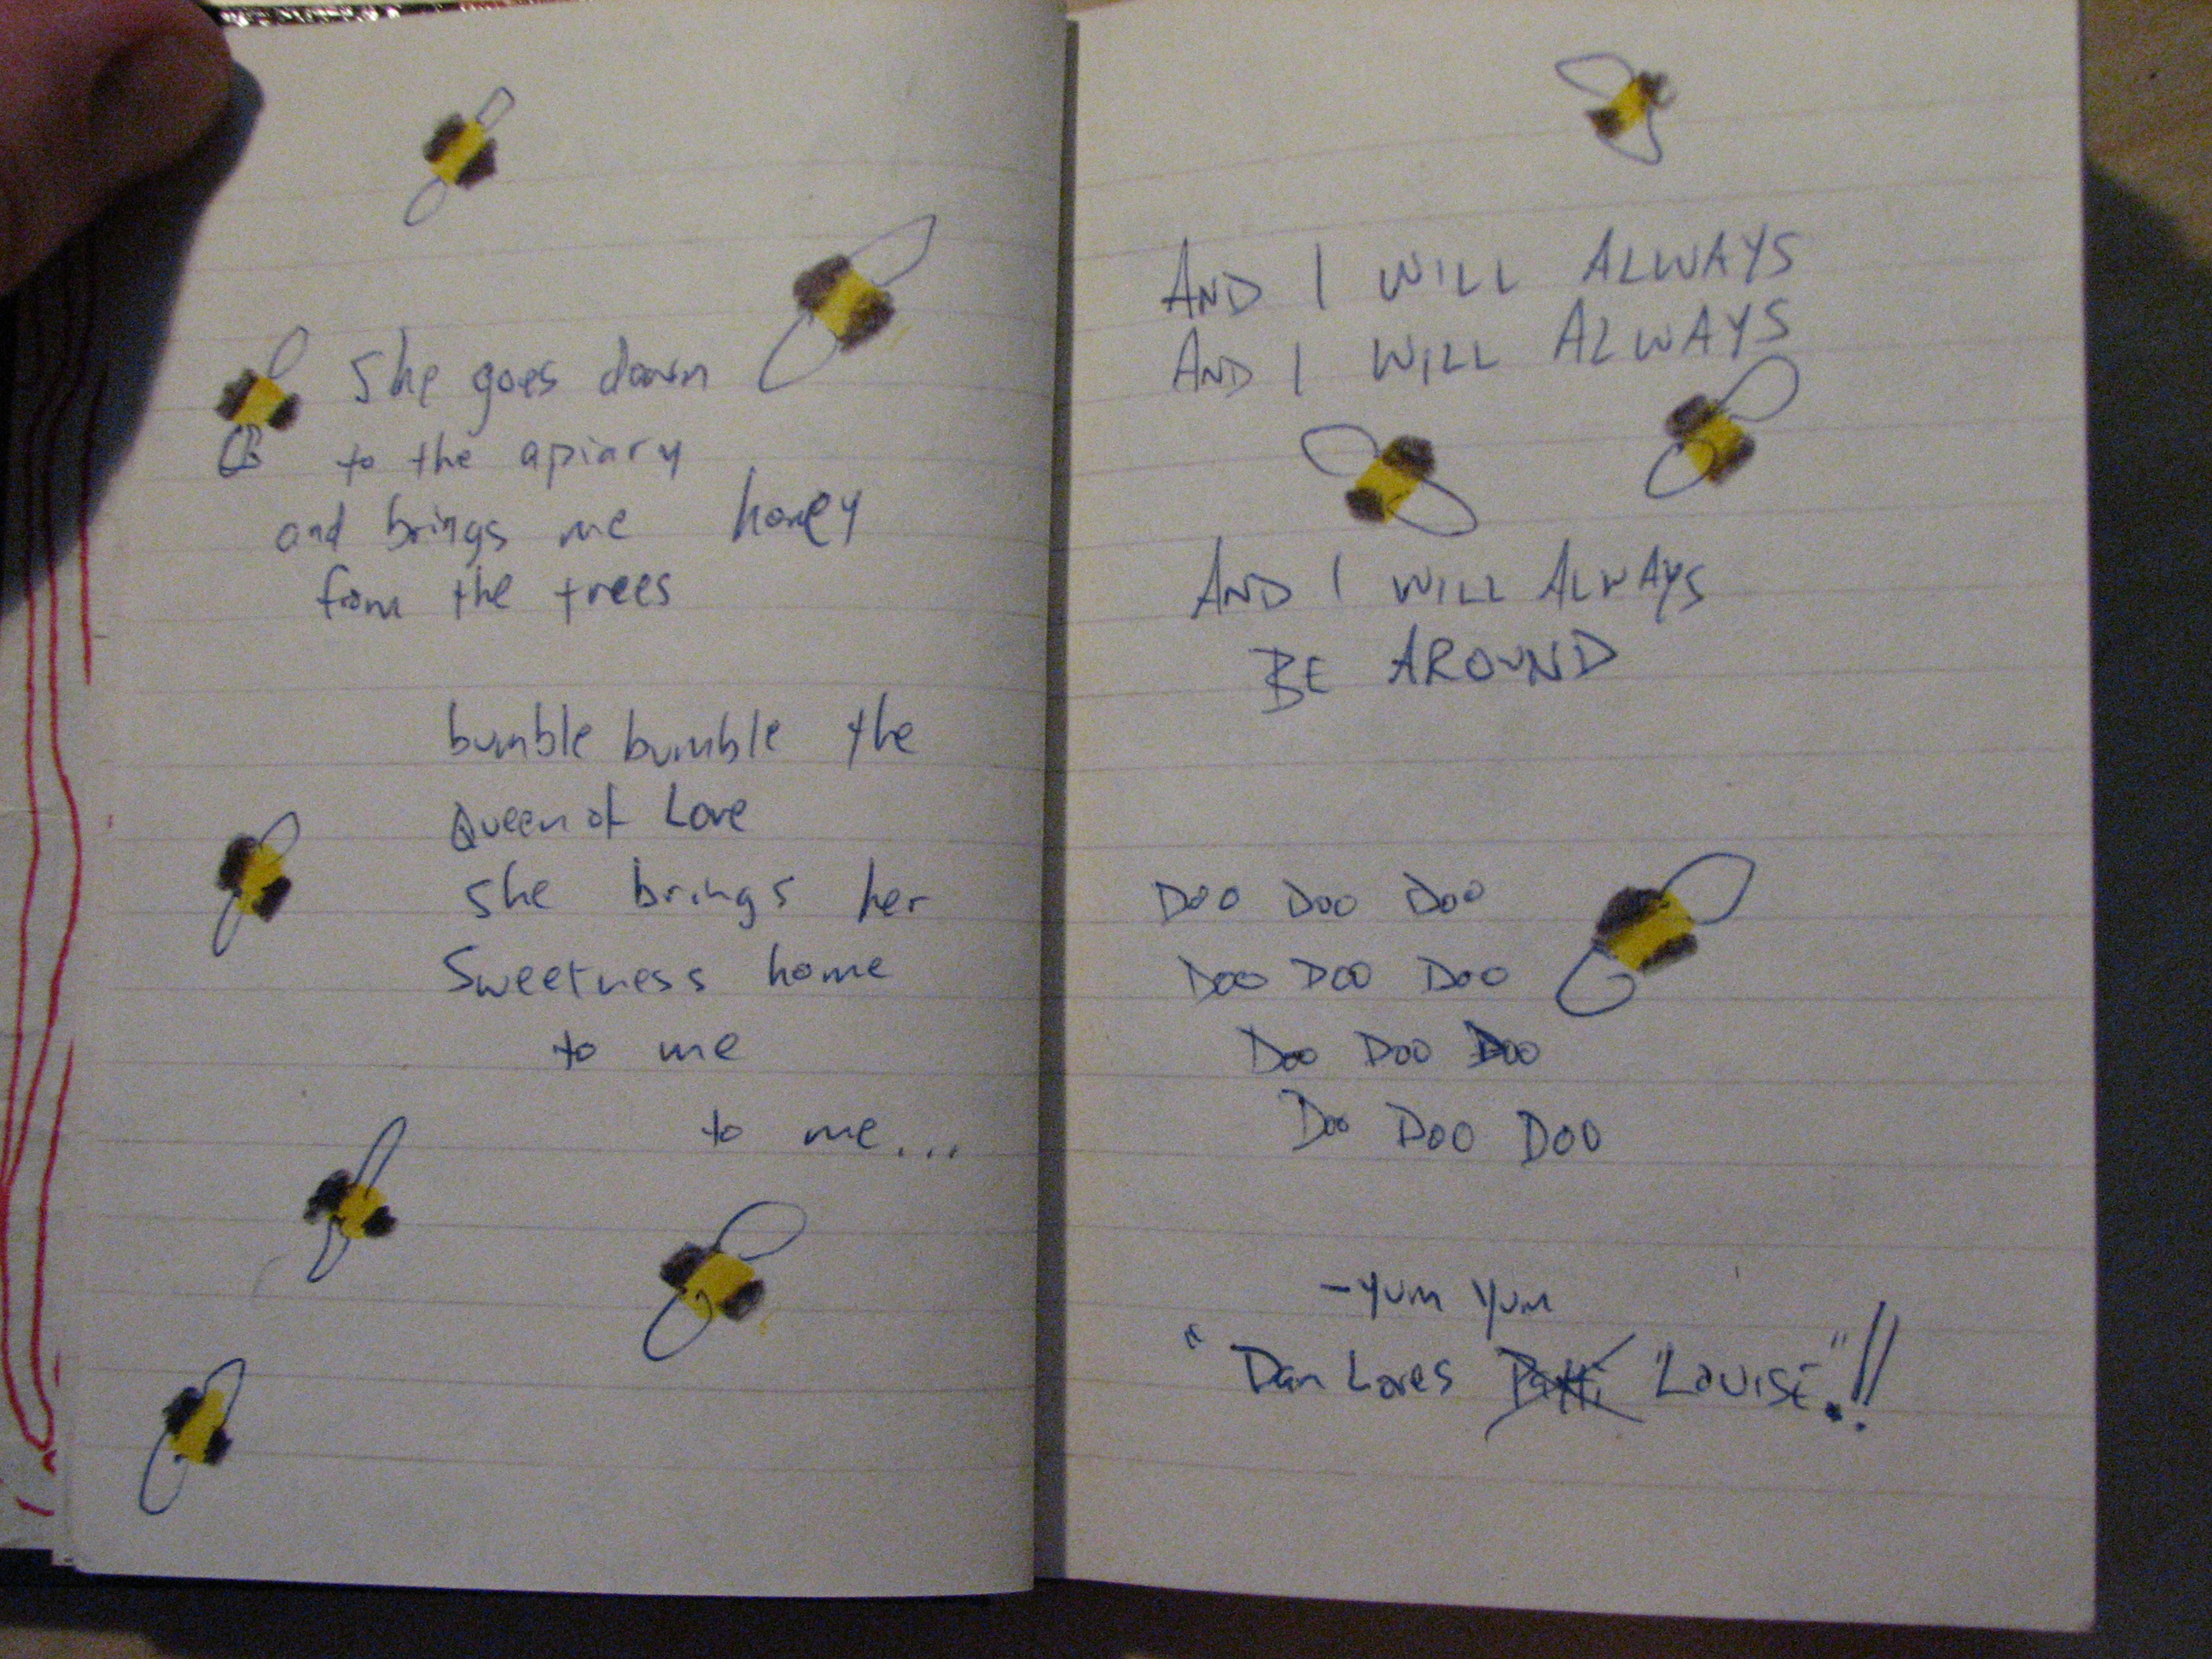 She goes down
to the apiary
and brings me honey
from the trees
bumble bumble the
Queen of Love
she brings her
Sweetness home
to me
to me...
AND I WILL ALWAYS
AND I WILL ALWAYS
AND I WILL ALWAYS
BE AROUND
DOO DOO DOO
DOO DOO DOO
DOO DOO DOO
DOO DOO DOO
- YUM YUM
"Dan Loves Patti "LOUISE"!!